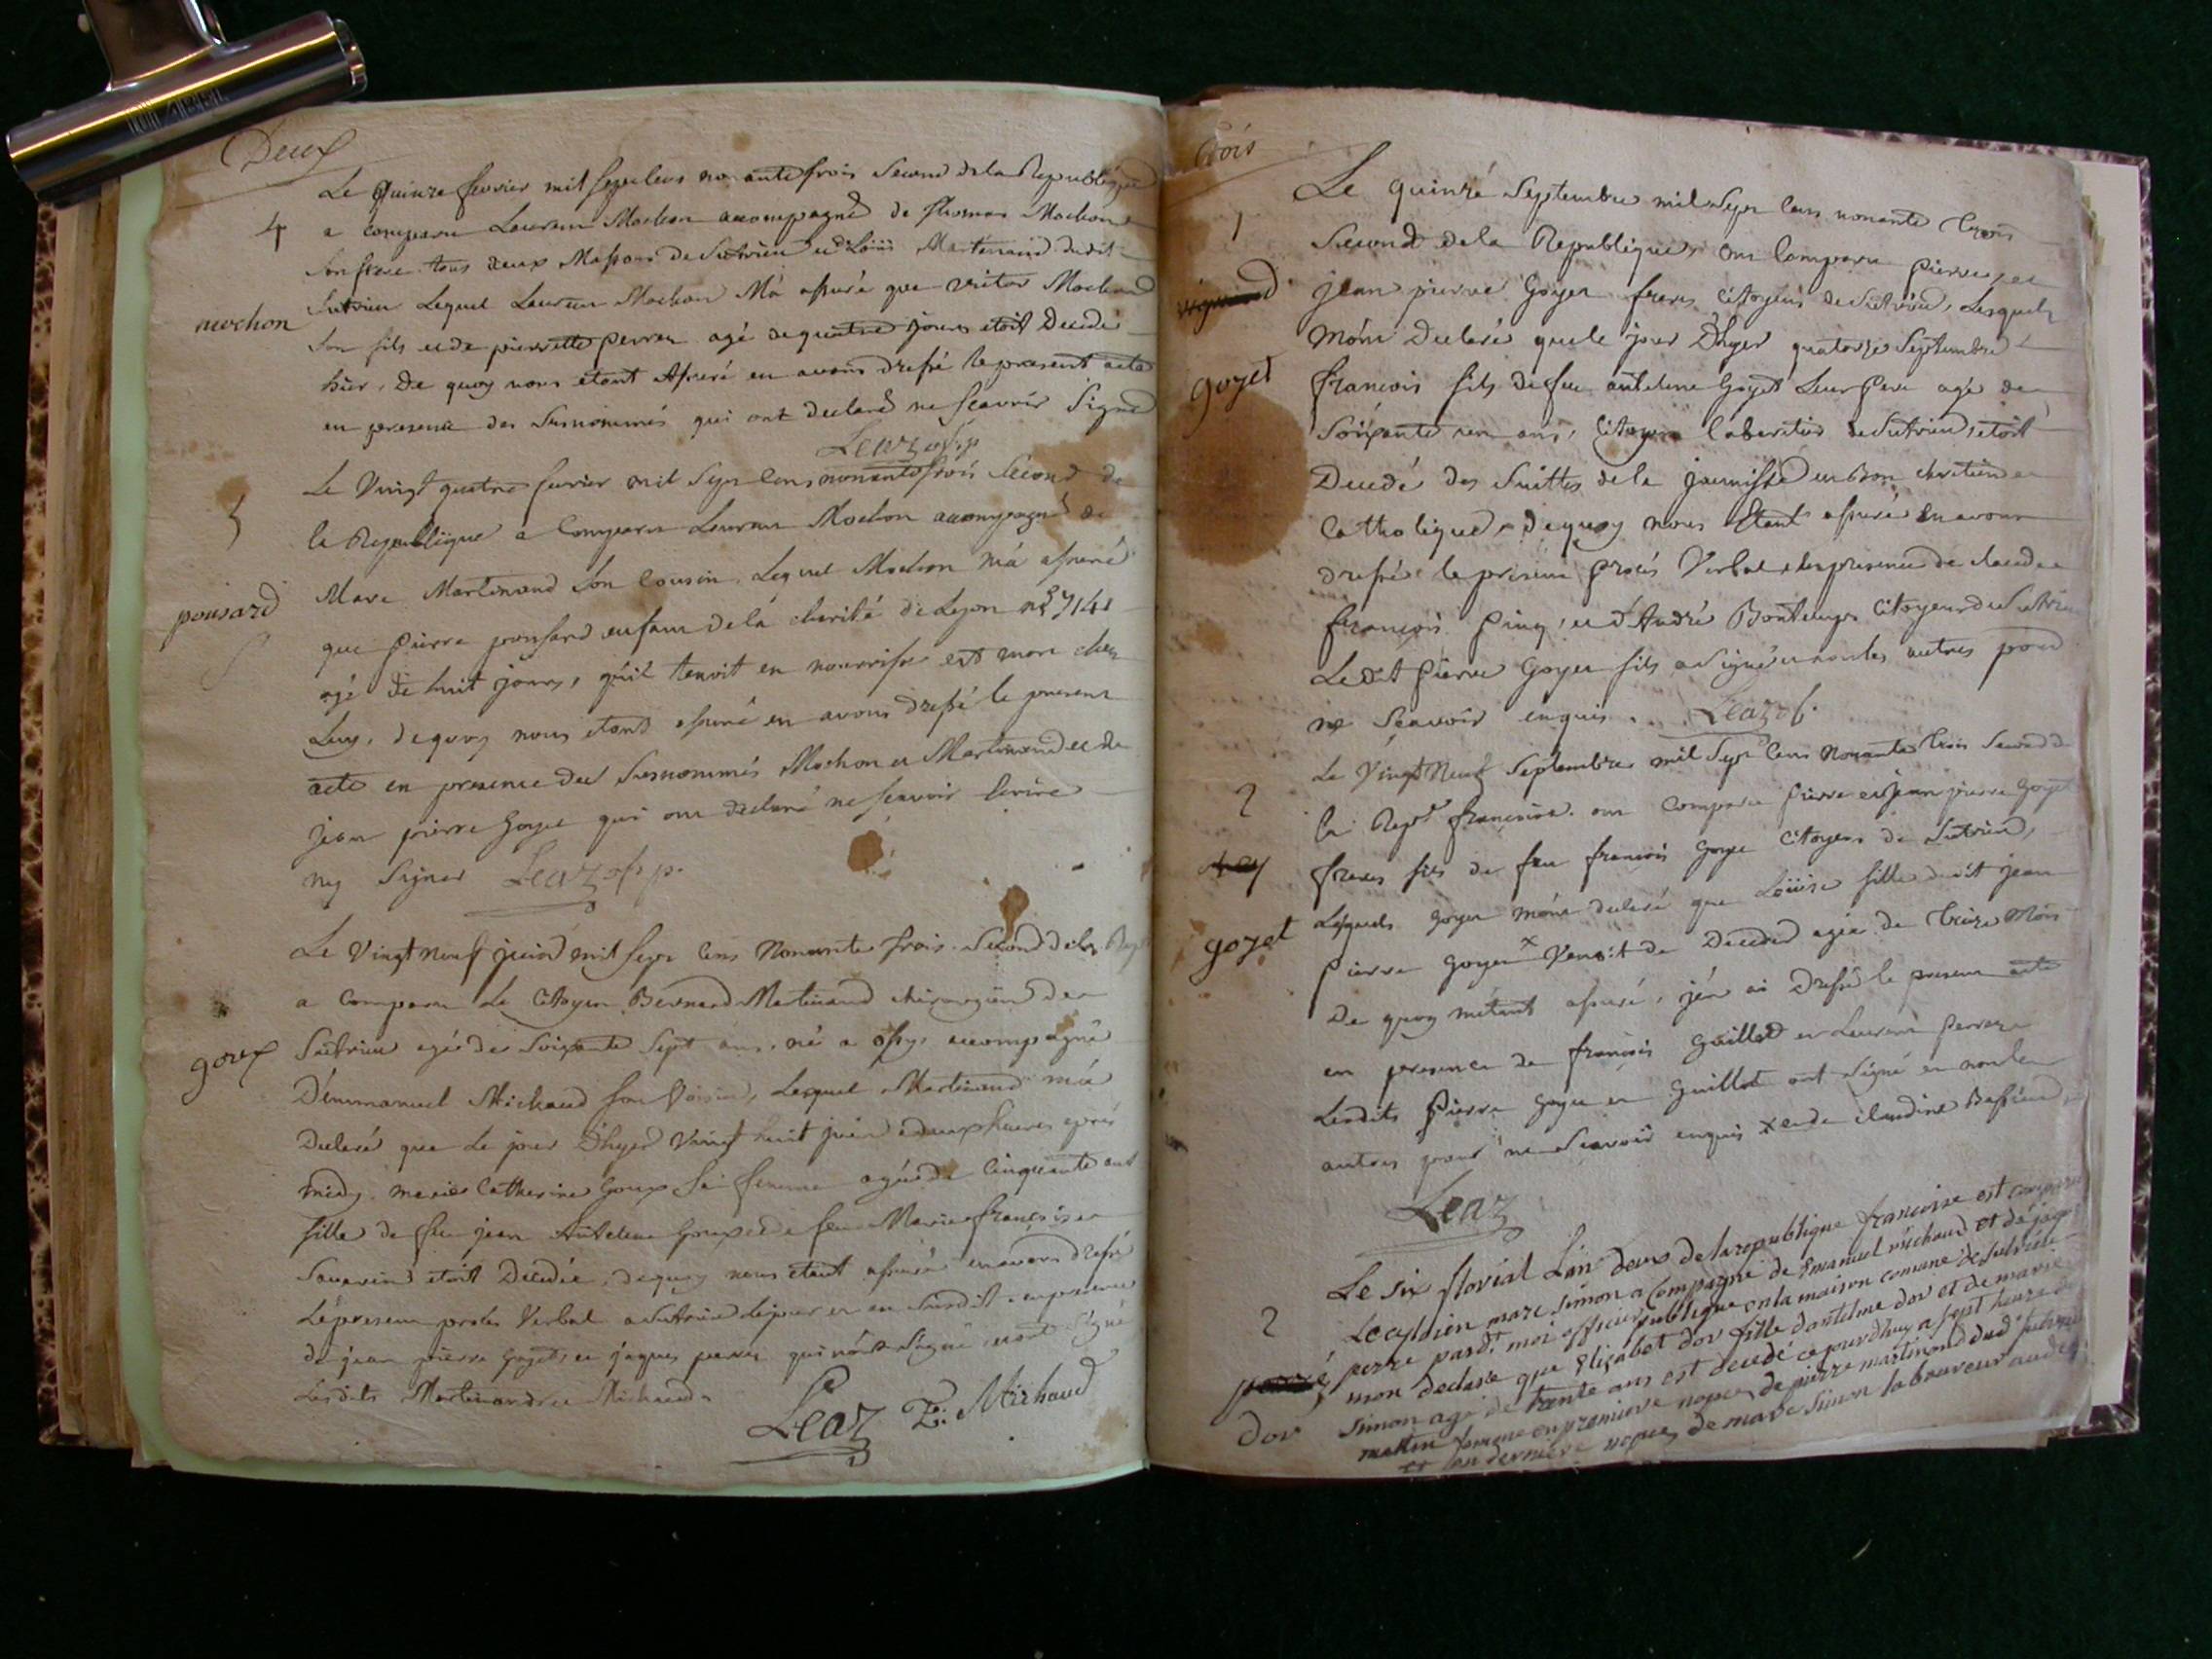 Deux
Le Quinze fevrier mil sept cens nonante trois second de la Republique
4
a comparu Laurent Mochon accompagné de thomas Mochon
son frere tous deux Massons de Sutrieu et de Loüis Martinand dudit
Sutrieu Lequel Laurent Mochon M'a assuré que victor Mochon
mochon
son fils et de pierrette perret agé de quatre jours etoit Decedé
hier, De quoy nous etant Assuré en avons dressé le present acte
en presence des Surnommés qui ont declaré ne scavoir Signer
Leaz off. p.
Le Vingt quatre fevrier mil Sept Cens nonante trois Second de
5
la Republique a Comparu Laurent Mochon accompagné de
Marc Martinand Son Cousin, Lequel Mochon m'a assuré
ponsard
que Pierre ponsard enfant de la charité de Lyon no 7141
agé de huit jours, qu'il tenoit en nourrisse est mort chez
Luy, de quoy nous etant assuré en avons dressé le present
acte en presence des Surnommés Mochon et Martinand et de
Jean pierre Goyet qui ont declaré ne scavoir Ecrire
ny Signer Leaz off. p.
Le Vingt Neuf juin mil Sept Cens Nonante trois Second de la Rep
a Comparu Le Citoyen Bernard Martinand chirurgien de
Sutrieu agé de Soixante Sept ans, né a ossy, accompagné
goux
D'emmanuel Michaud son Voisin, Lequel Martinand m'a
Declaré que Le jour D'hyer Vingt huit juin a deux heures après
midy, marie Catherine Goux Sa femme agée de Cinquante ans
fille de feu jean Antelme Goux et de feue Marie françoise
Savarin etoit Decedée, de quoy nous etant assuré en avons dressé
Le present procès Verbal a Sutrieu le jour et an Susdit en presence
de jean pierre Goyet, et jaques perret qui n'ont Signé, et ont Signé
Lesdits Martinand et Michaud.
Leaz E: Michaud
trois
Le quinze Septembre mil Sept Cens nonante trois
1
Second de la Republique, ont Comparu pierre et
jean pierre Goyet freres Citoyens de Sutrieu, Lesquels
m'ont Declaré que le jour D'hyer quatorze Septembre
goyet
francois fils de feu antelme Goyet Leur Pere agé de
Soixante un ans, Citoyen laboureur de Sutrieu, etoit
Decedé des Suittes de la jaunisse en Bon chretien et
Catholique, De quoy nous Etant assuré En avons
dressé le present procès Verbal, En presence de claude
françois Pin, et d'André Bontemps Citoyens de Sutrieu
Ledit Pierre Goyet fils a Signé et non les autres pour
ne Scavoir enquis. Leaz of.
Le Vingt Neuf Septembre mil Sept Cens Nonante trois Second de
2
la Rep. françoise ont Comparu Pierre et jean pierre Goyet
freres fils de feu francois Goyet Citoyens de Sutrieu,
Lesquels Goyet m'ont declaré que Loüise fille dudit jean
goyet
Pierre Goyet x Venoit de Deceder agée de treize Mois
De quoy m'etant assuré, j'en ai Dressé le present acte
en presence de françois Guillot et Laurent Perret
Lesdits Pierre Goyet et Guillot ont Signé et non les
autres pour ne Scavoir enquis x et de claudine Bassieu
Leaz
Le six florial L'an deux de la republique francoise est comparu
2
Le citoien marc simon a compagné de Emanuel michaud et de jaque
perre pard.t moi officier publique en la maison comune de sutrieu
mon declare que Elizabet dor fille d'antelme dor et de marie
simon agé de trente ans est decedé ce jourdhuy a sept heure du
dor
matin femme en premiere nopces de pierre martinand dud' sutrieu
et en derniere nopces de marc simon laboureur aud.